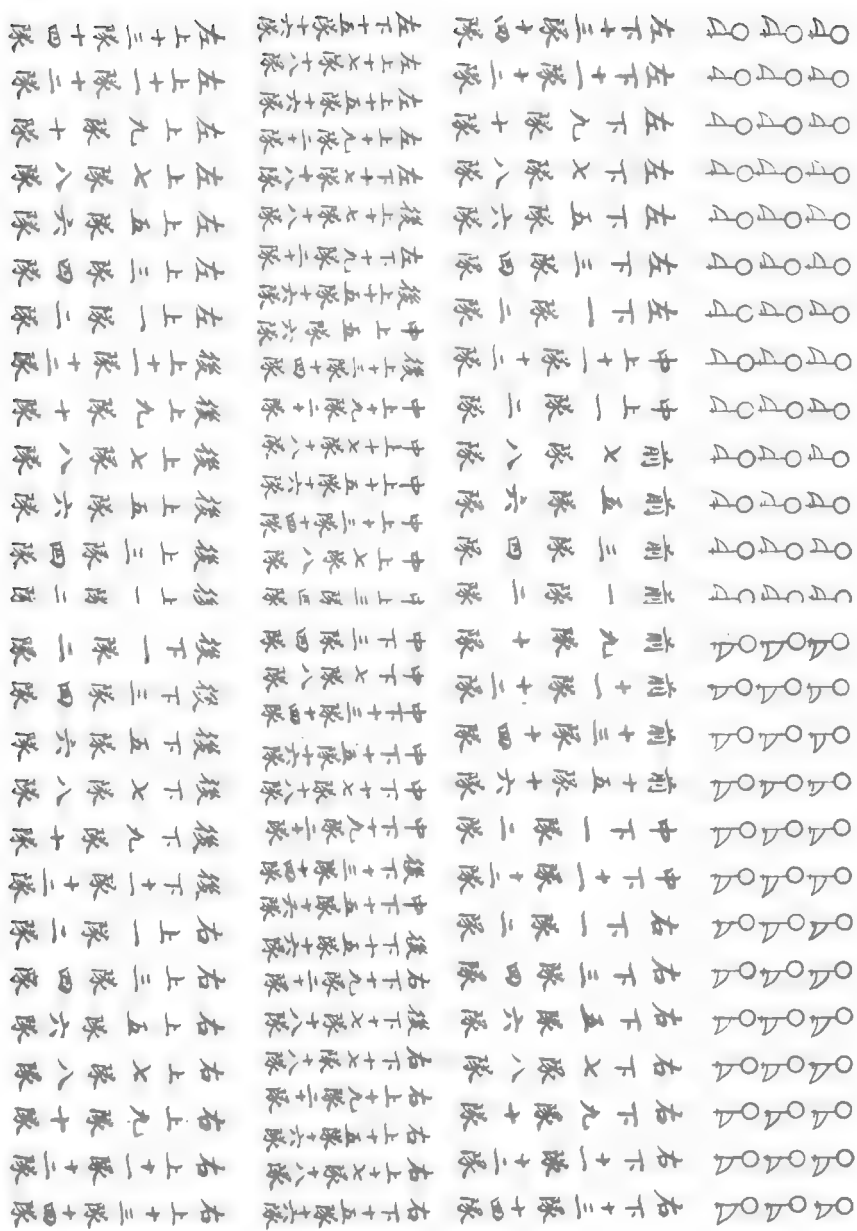 右下十三隊十四隊
右下十一隊十二隊
右下九隊十隊
右下七隊八隊
右下五隊六隊
右下三隊四隊
右下一隊二隊
中下十一隊十二隊
中下一隊二隊
前十五隊十六隊
前十三隊十四隊
前十一隊十二隊
前九隊十隊
前一隊二隊
前三隊四隊
前五隊六隊
前七隊八隊
中上一隊二隊
中上十一隊十二隊
左下一隊二隊
左下三隊四隊
左下五隊六隊
左下七隊八隊
左下九隊十隊
左下十一隊十二隊
左下十三隊十四隊
右下十五隊十六隊
右上十七隊十八隊
右上十五隊十六隊
右上十九隊二十隊
右下十七隊十八隊
後下十七隊十八隊
右下十九隊二十隊
後下十五隊十六隊
中下十五隊十六隊
後下十三隊十四隊
中下十九隊二十隊
中下十七隊十八隊
中下十五隊十六隊
中下十三隊十四隊
中下七隊八隊
中下三隊四隊
中上三隊四隊
中上七隊八隊
中上十三隊十四隊
中上十五隊十六隊
中上十七隊十八隊
中上十九隊二十隊
後上十三隊十四隊
中上五隊六隊
後上十五隊十六隊
左下十九隊二十隊
後上十七隊十八隊
左下十七隊十八隊
左上十九隊二十隊
左上十五隊十六隊
左上十七隊十八隊
左下十五隊十六隊
右上十三隊十四隊
右上十一隊十二隊
右上九隊十隊
右上七隊八隊
右上五隊六隊
右上三隊四隊
右上一隊二隊
後下十一隊十二隊
後下九隊十隊
後下七隊八隊
後下五隊六隊
後下三隊四隊
後下一隊二隊
後上一隊二隊
後上三隊四隊
後上五隊六隊
後上七隊八隊
後上九隊十隊
後上十一隊十二隊
左上一隊二隊
左上三隊四隊
左上五隊六隊
左上七隊八隊
左上九隊十隊
左上十一隊十二隊
左上十三隊十四隊